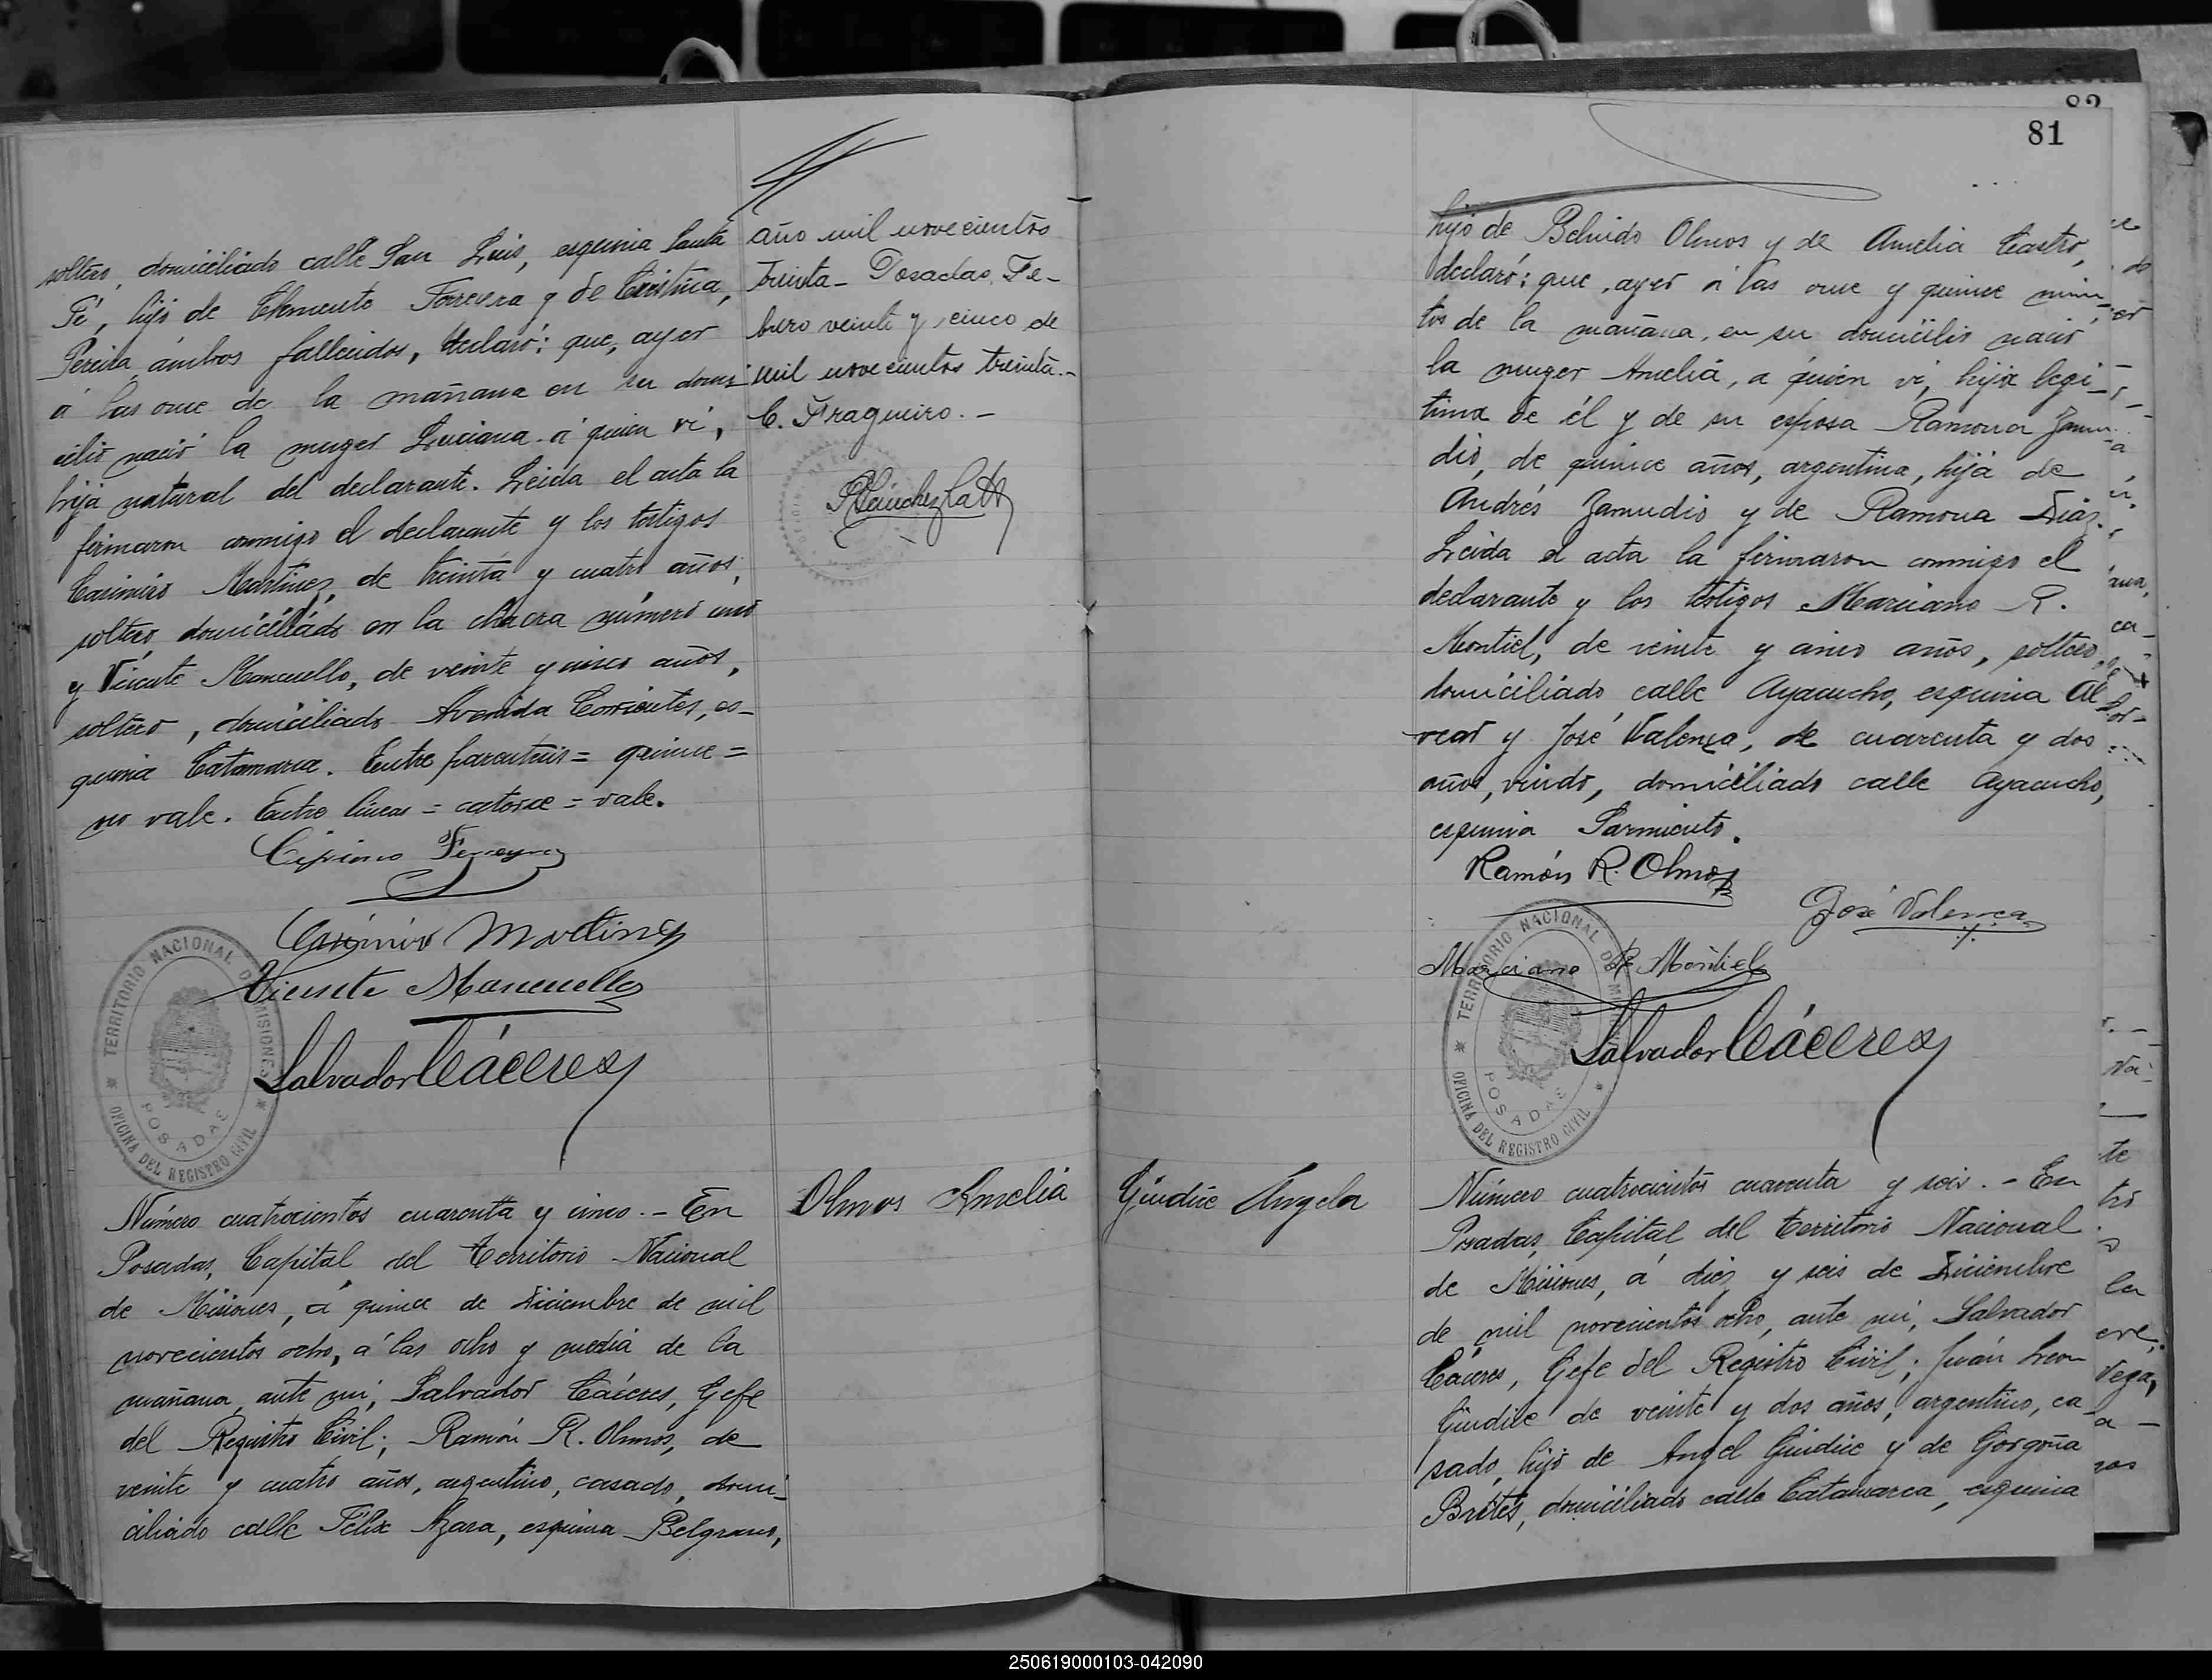 soltero, domiciliado calle San Luis, esquina Santa
Fé, hijo de Clemente Ferreyra y de Cristina
Pereira ámbos fallecidos, declaró: que, ayer
á las once de la mañana en su domi-
cilio nació la muger Luciana á quien ví,
hija natural del declarante. Leida el acta la
firmaron conmigo el declarante y los testigos
Casimiro Martinez, de treinta y cuatro años,
soltero, domiciliado en la chacra número uno
y Vicente Mancuello, de veinte y cinco años,
soltero, domiciliado Avenida Corrientes, es-
quina Catamarca. Entre parentesis = quince =
no vale. Entre lineas = catorce = vale.
Cipriano Ferreyra
Casimiro Martinez
Vicente Mancuello
Salvador Cáceres
TERRITORIO NACIONAL DE MISIONES
POSADAS
OFICINA DEL REGISTRO CIVIL
Número cuatrocientos cuarenta y cinco. - En
Posadas, Capital del Territorio Nacional
de Misiones, á quince de Diciembre de mil
novecientos ocho, á las ocho y media de la
mañana, ante mi, Salvador Cáceres, Gefe
del Registro Civil; Ramón R. Olmos, de
veinte y cuatro años, argentino, casado, domi-
ciliado calle Félix Azara, esquina Belgrano,
año mil novecientos
treinta - Posadas, Fe-
brero veinte y cinco de
mil novecientos treinta.-
C. Fragueiro. -
Olmos Amelia
Giudice Ángela
81
hijo de Belindo Olmos y de Amelia Castro,
declaró: que, ayer á las once y quince minu-
tos de la mañana, en su domicilio nació
la muger Amelia, a quien ví, hija legi-
tima de él y de su esposa Ramona Zamu-
dio, de quince años, argentina, hija de
Andrés Zamudio y de Ramona Diaz.
Leida el acta la firmaron conmigo el
declarante y los testigos Marciano R.
Montiel, de veinte y cinco años, soltero,
domiciliado calle Ayacucho, esquina Al
vear y José Valença, de cuarenta y dos
años, viudo, domiciliado calle Ayacucho,
esquina Sarmiento.
Ramón R. Olmos
José Valença
Marciano R. Montiel
Salvador Cáceres
TERRITORIO NACIONAL DE MISIONES
POSADAS
OFICINA DEL REGISTRO CIVIL
Número cuatrocientos cuarenta y seis. - En
Posadas, Capital del Territorio Nacional
de Misiones, á diez y seis de Diciembre
de mil novecientos ocho, ante mi, Salvador
Cáceres, Gefe del Registro Civil; Juán Leon
Giudice de veinte y dos años, argentino, ca-
sado, hijo de Angel Giudice y de Gorgoña
Brites, domiciliado calle Catamarca, esquina
250619000103-042090